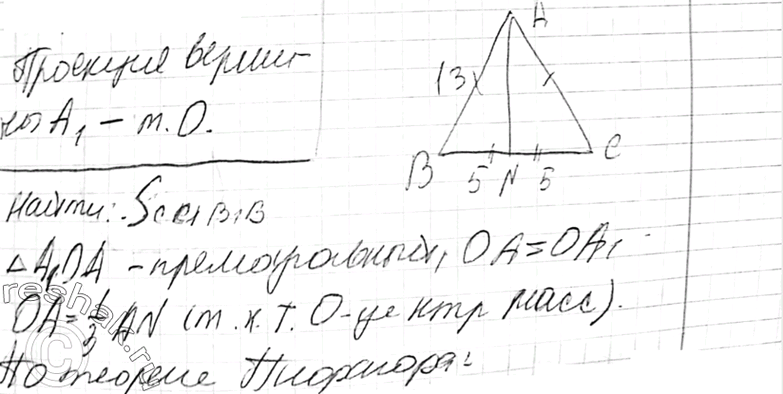 Проекция верши-
ны A₁ – т. O.
A
13
B 5 N 5 C
Найти: S CC₁B₁B
△A₁OA – прямоугольный, OA = OA₁
OA = ⅓ AN (т.к. т. O – центр масс).
По теореме Пифагора:
reshak.ru